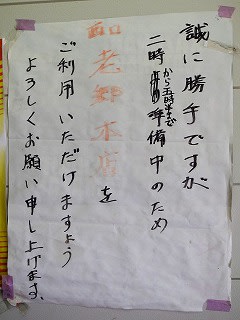 誠に勝手ですが
二時から五時まで準備中のため
老郷本店を
ご利用いただけますよう
よろしくお願い申し上げます。